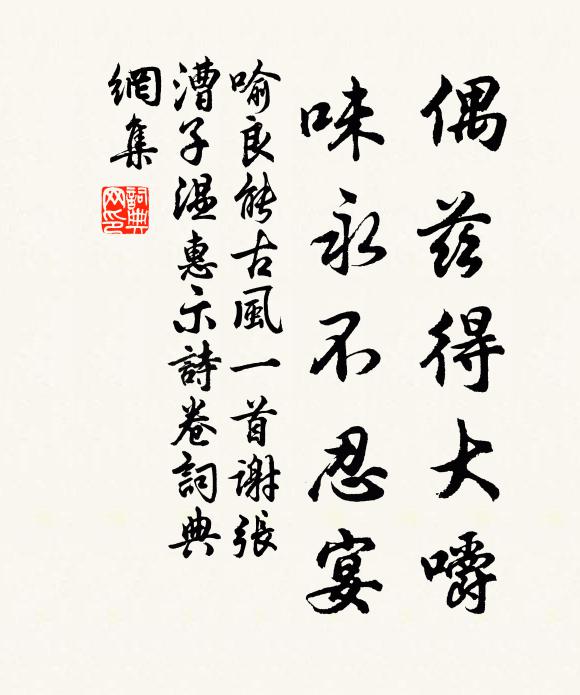 偶茲得大嚼
味永不忍宴
喻良能古風一首謝張
漕子溫惠示詩卷詞典
網集
詞典网印